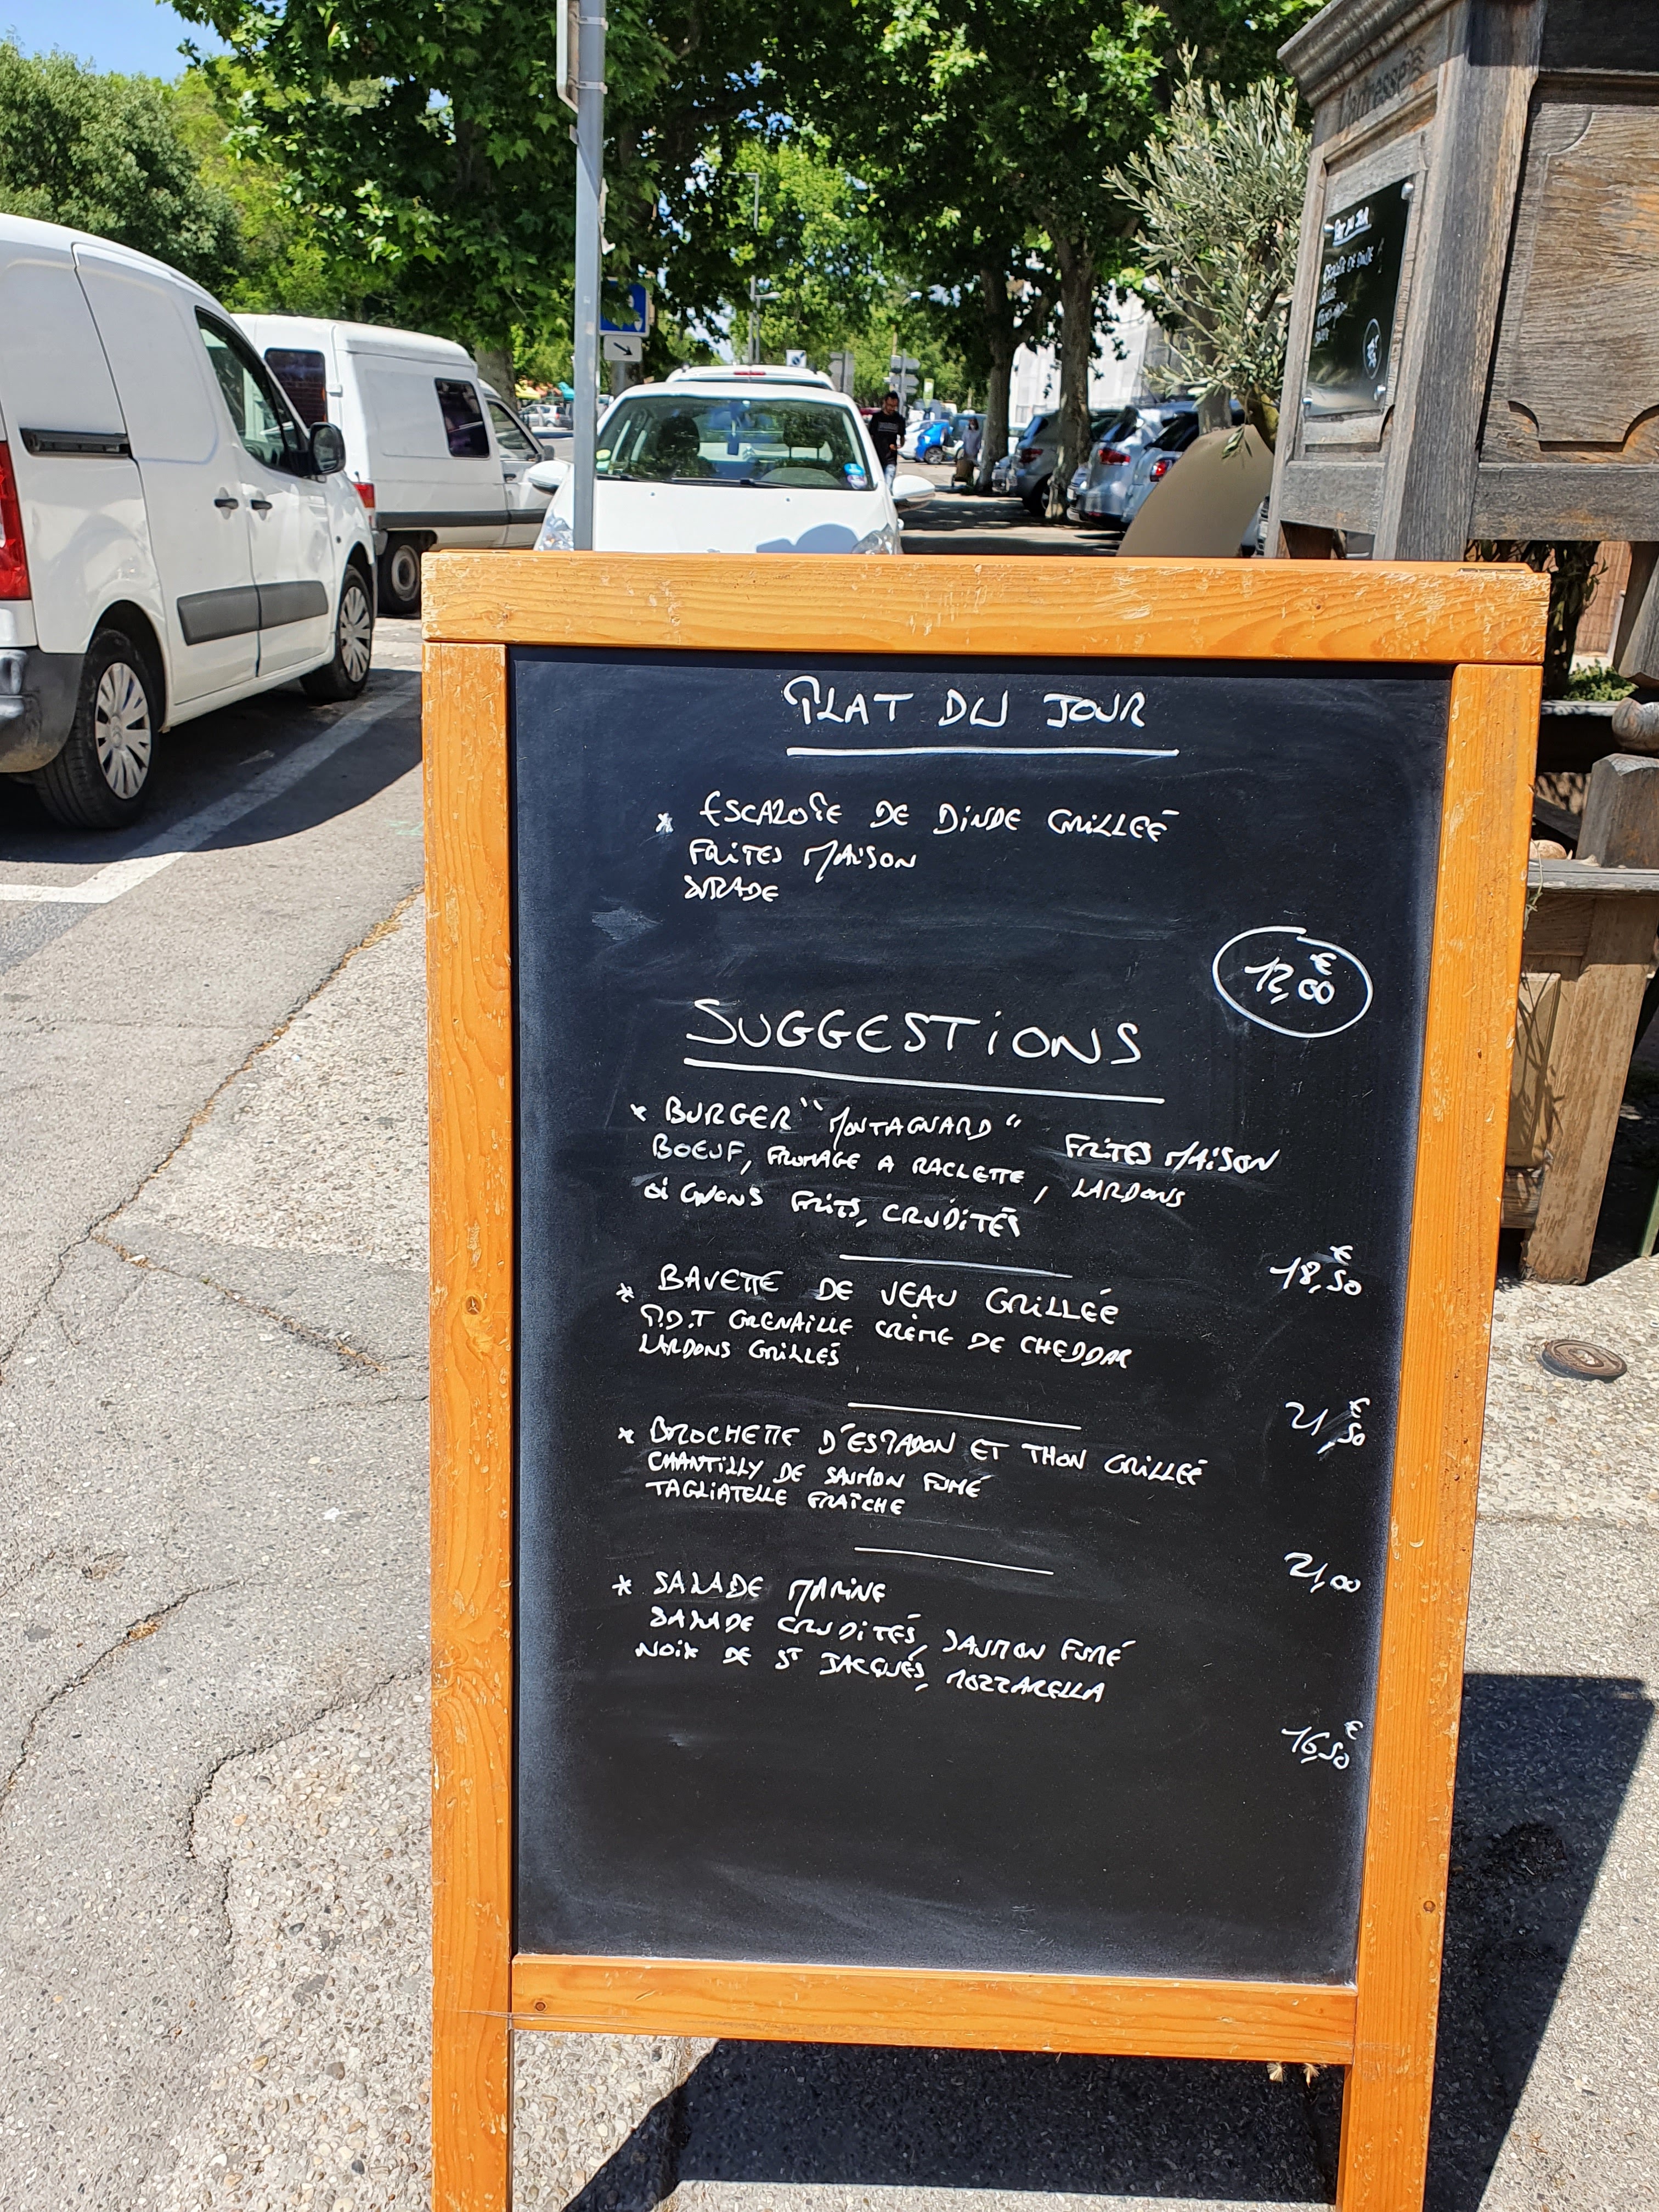 L'adresse
PLAT DU JOUR
* ESCALOPE DE DINDE GRILLEÉ
FRITES MAISON
SALADE
12,00 €
SUGGESTIONS
* BURGER "MONTAGNARD" FRITES MAISON
BOEUF, FROMAGE A RACLETTE, LARDONS
OIGNONS FRITS, CRUDITÉS
18,50 €
* BAVETTE DE VEAU GRILLEÉ
P.D.T GRENAILLE CRÈME DE CHEDDAR
LARDONS GRILLÉS
21,50 €
* BROCHETTE D'ESPADON ET THON GRILLEÉ
CHANTILLY DE SAUMON FUMÉ
TAGLIATELLE FRAÎCHE
21,00
* SALADE MARINE
SALADE CRUDITÉS, SAUMON FUMÉ
NOIX DE ST JACQUES, MOZZARELLA
16,50 €